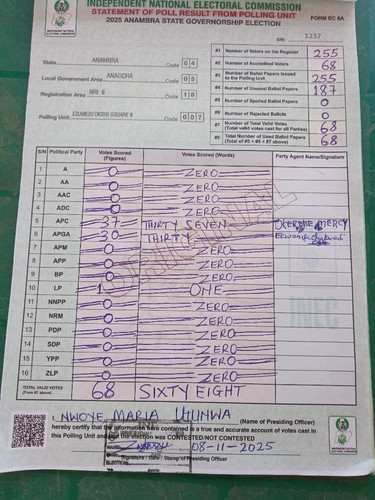 INDEPENDENT NATIONAL ELECTORAL COMMISSION
STATEMENT OF POLL RESULT FROM POLLING UNIT
2025 ANAMBRA STATE GOVERNORSHIP ELECTION
FORM EC 8A
S/N: 1237
State ANAMBRA Code 04
Local Government Area ANAOCHA Code 05
Registration Area NRI II Code 18
Polling Unit Code 007
#1 Number of Voters on the Register 255
#2 Number of Accredited Voters 68
#3 Number of Ballot Papers Issued to the Polling Unit 255
#4 Number of Unused Ballot Papers 187
#5 Number of Spoiled Ballot Papers 0
#6 Number of Rejected Ballots 0
#7 Number of Total Valid Votes (Total valid votes cast for all Parties) 68
#8 Total Number of Used Ballot Papers (Total of #5 + #6 + #7 above) 68
S/N Political Party Votes Scored (Figures) Votes Scored (Words) Party Agent Name/Signature
1 A 0 ZERO
2 AA 0 ZERO
3 AAC 0 ZERO
4 ADC 0 ZERO
5 APC 37 THIRTY SEVEN MERCY
6 APGA 30 THIRTY
7 APM 0 ZERO
8 APP 0 ZERO
9 BP 0 ZERO
10 LP 1 ONE
11 NNPP 0 ZERO
12 NRM 0 ZERO
13 PDP 0 ZERO
14 SDP 0 ZERO
15 YPP 0 ZERO
16 ZLP 0 ZERO
TOTAL VALID VOTES (From #7 above) 68 SIXTY EIGHT
ORIGINAL
INEC
I, NWOYE MARIA (Name of Presiding Officer)
hereby certify that the information contained is a true and accurate account of votes cast in
this Polling Unit and that the election was CONTESTED/NOT CONTESTED
08-11-2025
Signature / Date / Stamp of Presiding Officer